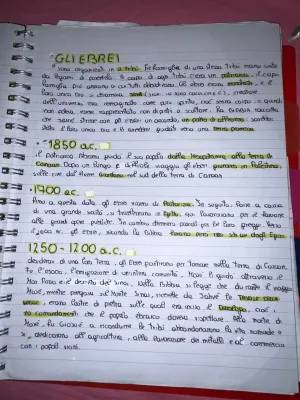 GLI EBREI
sono organizzati in tribù. Le famiglie di una stessa tribù erano unite
da legami di parentela. A capo di ogni tribù c'era un patriarca, il capo
famiglia più anziano a cui tutti obbedivano. Gli ebrei erano
loro unico Dio si chiamava creatore
dell'universo era immaginato come puro spirito, cioè senza corpo e quindi
non poteva essere rappresentato con dipinti o sculture. La Bibbia racconta
che Jahvè strinse con gli ebrei un accordo, un patto di alleanza: sarebbe
stato il loro unico Dio e li avrebbe guidati verso una terra promessa.
1850 a.C.
Il patriarca Abramo guidò il suo popolo dalla Mesopotamia alla terra di
Canaan. Dopo un lungo e difficile viaggio gli ebrei giunsero in Palestina
sulle rive del fiume Giordano nel sud della terra di Canaan
1400 a.C.
Fino a questa data gli ebrei vissero in Palestina. In seguito, forse a causa
di una grande siccità, si trasferirono in Egitto, qui lavoravano per il faraone
alle grandi opere pubbliche. In cambio ottennero pascoli per le loro greggi. Verso
il 1200 a.C. gli ebrei, secondo la Bibbia furono
1250 - 1200 a.C.
desiderosi di una loro terra, gli Ebrei partirono per tornare nella terra di Canaan.
Fu l'esodo, l'emigrazione di un'intera comunità. Mosè li guidò attraverso il
Mar Rosso e il deserto del Sinai. Nella Bibbia si legge che durante il viaggio
Mosè, mentre pregava sul Monte Sinai, ricevette da Jahvè le Tavole della
Legge, erano lastre di pietra sulle quali era inciso il Decalogo, cioè i
10 comandamenti che il popolo ebraico doveva rispettare. Alla morte di
Mosè, fu Giosuè a ricondurre le tribù abbandonarono la vita nomade e
si dedicarono all'agricoltura, alla lavorazione dei metalli e al commercio
con i popoli vicini.